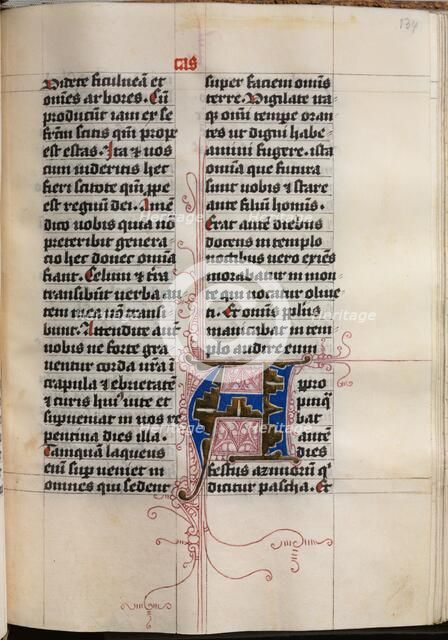 134
cas
Videte ficulneā et
om̄es arbores. Cū
producūt iam ex se
fructū scitis qm̄ prope
est estas. Ita et uos
cum uideritis hec
fieri scitote qm̄ ꝓpe
est regnū dei. Amē
dico uobis quia nō
preteribit genera
cio hec donec om̄ia
fiant. Celum et t̄ra
transibūt uerba au
tem mea nō transi
bunt. Attendite aut̄
uobis ne forte gra
uentur corda ur̄a ī
crapula et ebrietate
et curis huiꝰ uite et
superueniat in uos re
pentina dies illa.
Tamquā laqueus
eni superueniet in
omnes qui sedent
super faciem om̄is
terre. Vigilate ita
qꝫ om̄i tempe oran
tes ut digni habe
amini fugere. ista
om̄ia que futura
sunt uobis et stare
ante filiū hoīnis.
Erat autē diebus
docens in templo
noctibus uero exiēs
morabatur in mon
te qui uocatur oliue
ti. Et om̄is pplus
manicabat in tem
plo audire eum
A ppro
pinqͥ
bat
autē
dies
festus azimorū qͥ
dicitur pascha. Et
Heritage
heritage